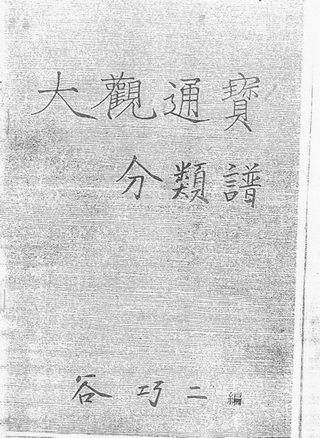 大觀通寶
分類譜
谷巧二編